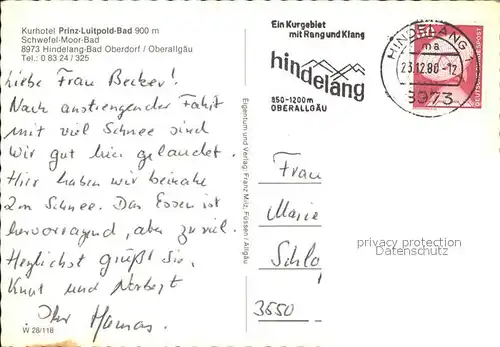 Kurhotel Prinz-Luitpold-Bad 900 m
Schwefel-Moor-Bad
8973 Hindelang-Bad Oberdorf / Oberallgäu
Tel.: 0 83 24 / 325
Liebe Frau Becker!
Nach anstrengender Fahrt
mit viel Schnee sind
wir gut hier gelandet.
Hier haben wir beinahe
2m Schnee. Das Essen ist
hervorragend, aber zu viel.
Herzlichst grüßt Sie,
Knut und Norbert
Ihr
W 28/118
Eigentum und Verlag: Franz Milz, Füssen / Allgäu
Ein Kurgebiet
mit Rang und Klang
hindelang
850-1200m
OBERALLGÄU
HINDELANG 1
ma
23.12.80-12
8973
DEUTSCHE BUNDESPOST
Frau
Marie
Schlo
3550
privacy protection
Datenschutz